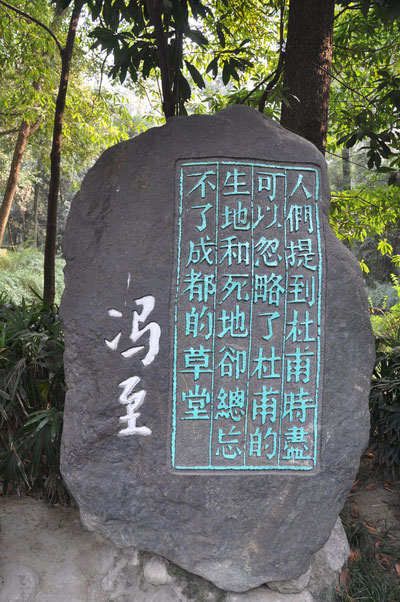 人們提到杜甫時盡
可以忽略了杜甫的
生地和死地卻總忘
不了成都的草堂
冯至